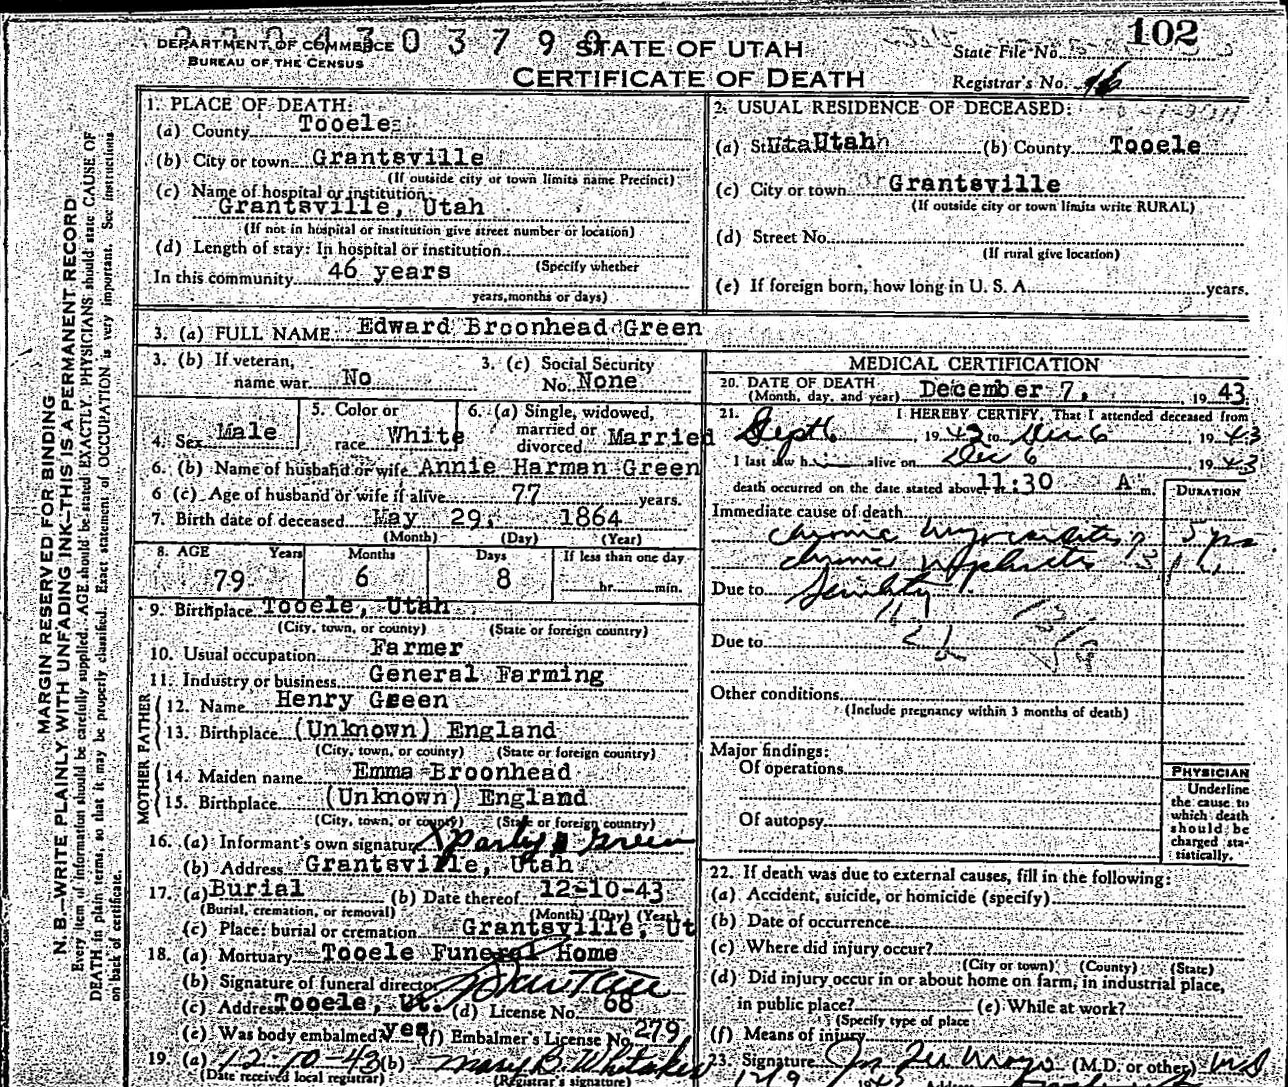 2 2 0 4 3 0 3 7 9 9
DEPARTMENT OF COMMERCE
BUREAU OF THE CENSUS
STATE OF UTAH
CERTIFICATE OF DEATH
State File No. 102
Registrar's No. 46
MARGIN RESERVED FOR BINDING
N. B.—WRITE PLAINLY WITH UNFADING INK—THIS IS A PERMANENT RECORD
Every item of information should be carefully supplied. AGE should be stated EXACTLY. PHYSICIANS should state CAUSE OF
DEATH in plain terms, so that it may be properly classified. Exact statement of OCCUPATION is very important. See instructions
on back of certificate.
1. PLACE OF DEATH:
(a) County Tooele
(b) City or town Grantsville
(If outside city or town limits name Precinct)
(c) Name of hospital or institution:
Grantsville, Utah
(If not in hospital or institution give street number or location)
(d) Length of stay: In hospital or institution
(Specify whether
In this community 46 years
years, months or days)
2. USUAL RESIDENCE OF DECEASED:
(a) State Utah (b) County Tooele
(c) City or town Grantsville
(If outside city or town limits write RURAL)
(d) Street No.
(If rural give location)
(e) If foreign born, how long in U. S. A. years.
3. (a) FULL NAME Edward Broonhead Green
3. (b) If veteran,
name war No
3. (c) Social Security
No. None
4. Sex Male
5. Color or
race White
6. (a) Single, widowed,
married or
divorced Married
6. (b) Name of husband or wife Annie Harman Green
6 (c) Age of husband or wife if alive 77 years.
7. Birth date of deceased May 29, 1864
(Month) (Day) (Year)
8. AGE Years Months Days If less than one day
79 6 8 hr. min.
9. Birthplace Tooele, Utah
(City, town, or county) (State or foreign country)
10. Usual occupation Farmer
11. Industry or business General Farming
FATHER
12. Name Henry Green
13. Birthplace (Unknown) England
(City, town, or county) (State or foreign country)
MOTHER
14. Maiden name Emma Broonhead
15. Birthplace (Unknown) England
(City, town, or county) (State or foreign country)
16. (a) Informant's own signature Green
(b) Address Grantsville, Utah
17. (a) Burial (b) Date thereof 12-10-43
(Burial, cremation, or removal) (Month) (Day) (Year)
(c) Place: burial or cremation Grantsville, Ut
18. (a) Mortuary Tooele Funeral Home
(b) Signature of funeral director
(c) Address Tooele, Ut. (d) License No. 68
(e) Was body embalmed yes (f) Embalmer's License No. 279
19. (a) 12-10-43 (b) Mary B. Whitaker
(Date received local registrar) (Registrar's signature)
MEDICAL CERTIFICATION
20. DATE OF DEATH
(Month, day, and year) December 7, 19 43
21. I HEREBY CERTIFY, That I attended deceased from
Sept 6, 19 43 to Dec 6, 19 43
I last saw h alive on Dec 6, 19 43
death occurred on the date stated above at 11:30 A m.
DURATION
Immediate cause of death
chronic myocarditis 5 yrs
chronic nephritis
Due to Senility
Due to
Other conditions
(Include pregnancy within 3 months of death)
Major findings:
Of operations
Of autopsy
PHYSICIAN
Underline
the cause to
which death
should be
charged sta-
tistically.
22. If death was due to external causes, fill in the following:
(a) Accident, suicide, or homicide (specify)
(b) Date of occurrence
(c) Where did injury occur?
(City or town) (County) (State)
(d) Did injury occur in or about home on farm, in industrial place,
in public place? (e) While at work?
(Specify type of place
(f) Means of injury
23. Signature (M.D. or other)